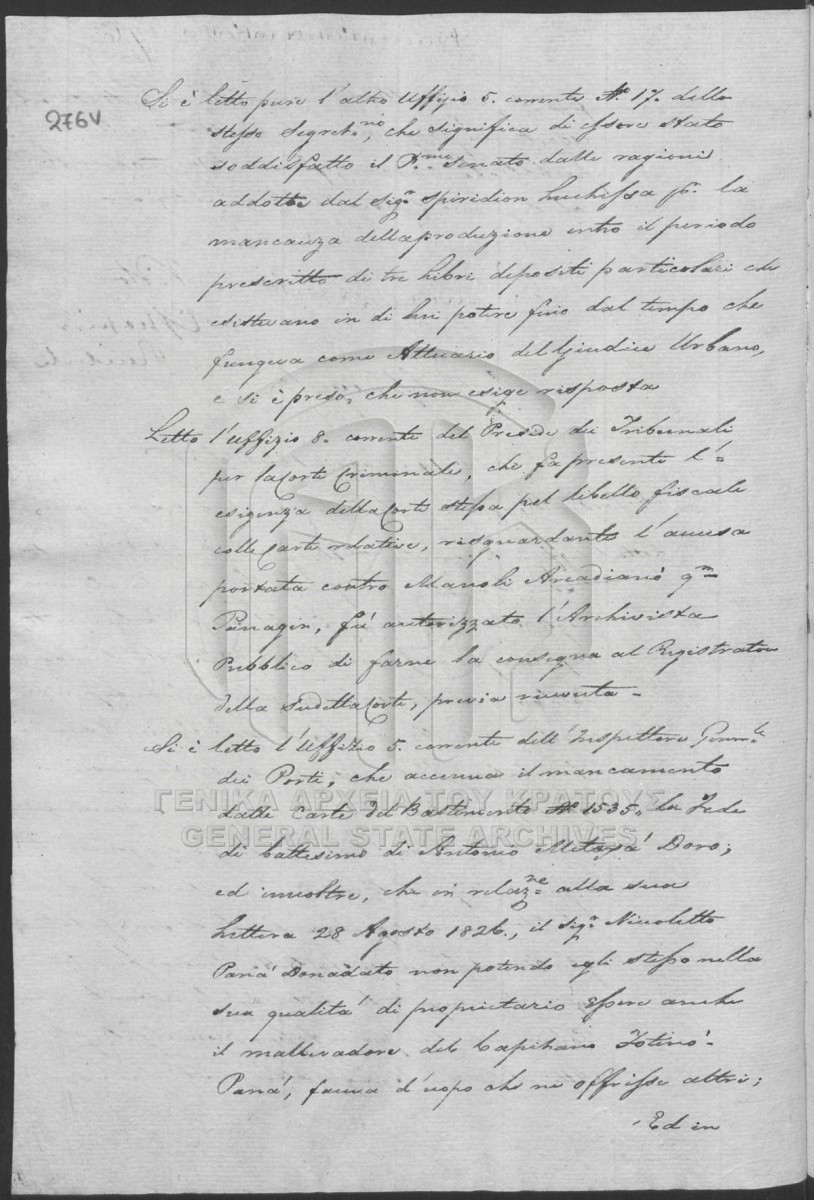 276V
Si è letto pure l'altro Uffizio 5. corrente Nº 17. dello
stesso Segret.rio, che significa di essere stato
soddisfatto il P.mo Senato dalle ragioni
addotte dal Sig.r Spiridion Luchissa p.r la
mancanza della produzione entro il periodo
prescritto di tre Libri depositi particolari che
esistevano in di lui potere fino dal tempo che
fungeva come Attuario del Giudice Urbano,
e si è preso, che non esige risposta
Letto l'Uffizio 8. corrente del Preside dei Tribunali
per la Corte Criminale, che fa presente l'=
esigenza della Corte stessa pel libello fiscale
colle Carte relative, risguardante l'accusa
portata contro Manoli Arcadianò q.m
Panagin, fù autorizzato l'Archivista
Pubblico di farne la consegna al Registrator
della sudetta Corte, previa ricevuta =
Si è letto l'Uffizio 5. corrente dell'Inspettore Gener.le
dei Porti, che accenna il mancamento
dalle Carte del Bastimento Nº 1535. la Fede
di battesimo di Antonio Metaxà Doro;
ed inoltre, che in relaz.ne alla sua
Lettera 28 Agosto 1826., il Sig.r Nicoletto
Panà Donàdato non potendo egli stesso nella
sua qualità di proprietario essere anche
il mallevadore del Capitano Fotinò
Panà, faceva d'uopo che ne offrisse altri;
Ed in
ΓΕΝΙΚΑ ΑΡΧΕΙΑ ΤΟΥ ΚΡΑΤΟΥΣ
GENERAL STATE ARCHIVES